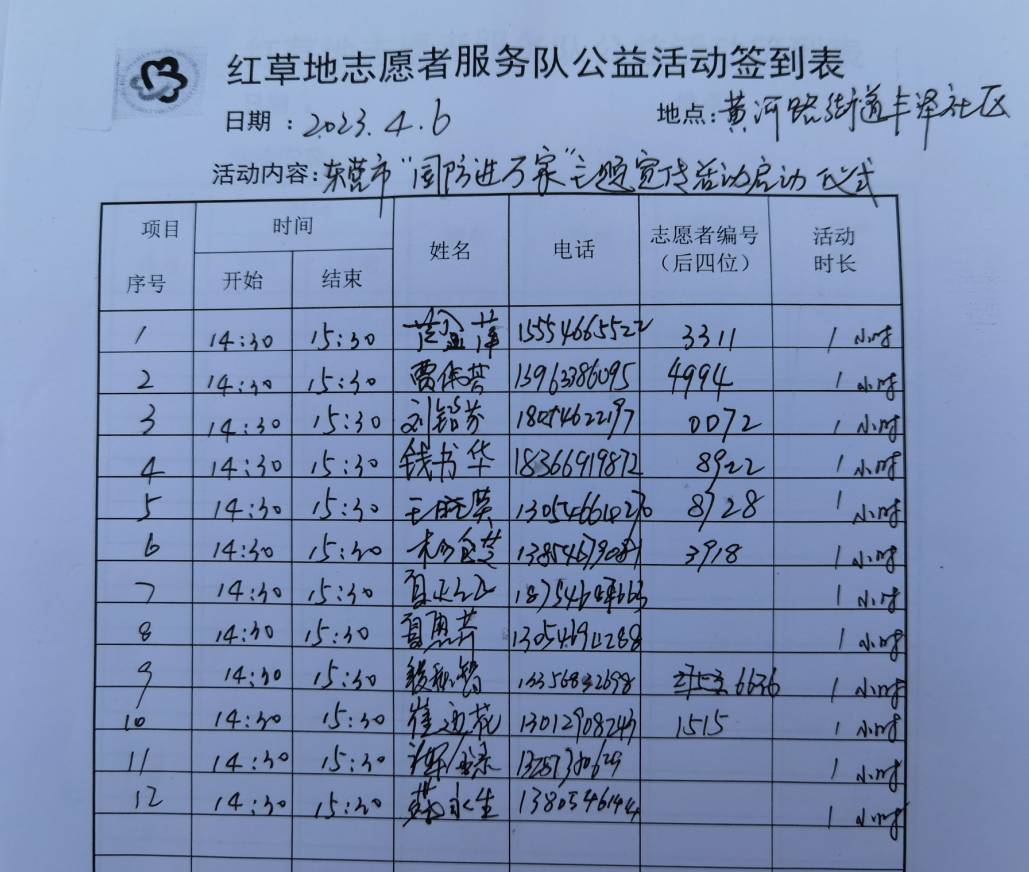 红草地志愿者服务队公益活动签到表
日期：2023.4.6 地点：黄河路街道丰泽社区
活动内容：东营市“国防进万家”主题宣传活动启动仪式
项目 时间 姓名 电话 志愿者编号（后四位） 活动时长
序号 开始 结束
1 14:30 15:30 15554665522 3311 1小时
2 14:30 15:30 贾保芬 13963386095 4994 1小时
3 14:30 15:30 刘 18054622197 0072 1小时
4 14:30 15:30 钱书华 18366919872 8922 1小时
5 14:30 15:30 王晓英 8728 1小时
6 14:30 15:30 3918 1小时
7 14:30 15:30 1小时
8 14:30 15:30 1小时
9 14:30 15:30 6636 1小时
10 14:30 15:30 崔迎花 13012908243 1515 1小时
11 14:30 15:30 1小时
12 14:30 15:30 永生 1小时